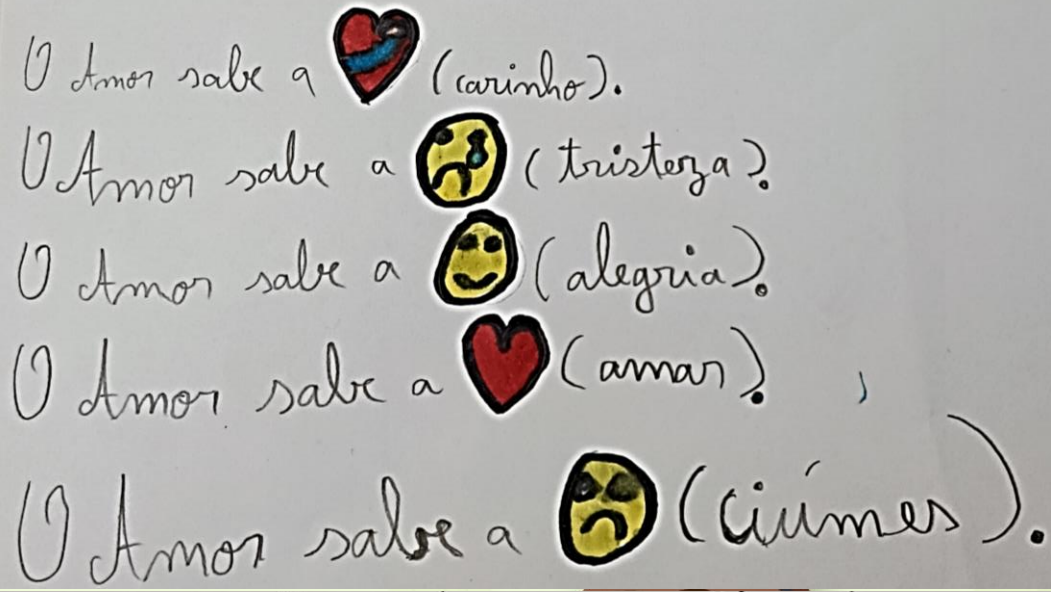 O Amor sabe a (carinho).
O Amor sabe a (tristeza).
O Amor sabe a (alegria).
O Amor sabe a (amar).
O Amor sabe a (ciúmes).